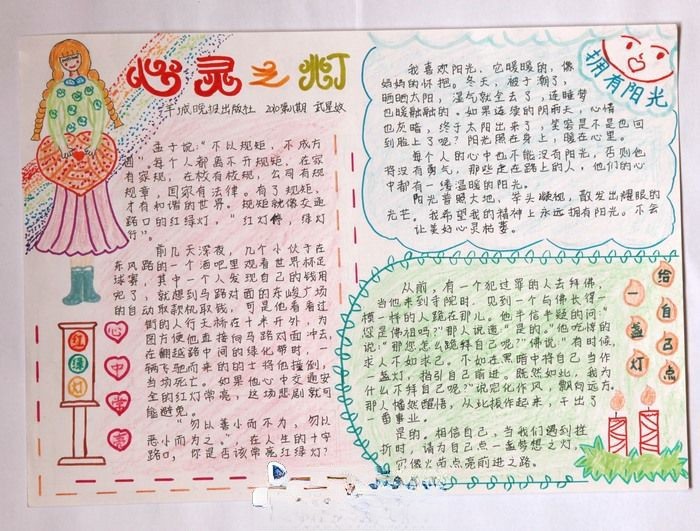 心灵之灯
羊城晚报出版社 2010第1期 武星妏
孟子说:“不以规矩,不成方
圆”。每个人都离不开规矩,在家
有家规,在校有校规,公司有规
规章,国家有法律。有了规矩,
才有和谐的世界。规矩就像交通
路口的红绿灯,“红灯停,绿灯
行”。
前几天深夜,几个小伙子在
东风路的一个酒吧里观看世界杯足
球赛,其中一个人发现自己的钱用
完了,就想到马路对面的东峻广场
的自动取款机取钱,可是他看看过
街的人行天桥在十米开外,为
图方便他直接向马路对面冲去,
在翻越路中间的绿化带时,一
辆飞驰而来的的士将他撞倒,
当场死亡。如果他心中交通安
全的红灯常亮,这场悲剧就可
能避免。
“勿以善小而不为,勿以
恶小而为之。”,在人生的十字
路口,你是否该常亮红绿灯?
红
绿
灯
心
中
常
亮
拥有阳光
我喜欢阳光,它暖暖的,像
妈妈的怀抱。冬天,被子潮了,
晒晒太阳,湿气就全去了,连睡梦
也暖融融的。如果连续的阴雨天,心情
也灰暗,终于太阳出来了,笑容是不是也回
到脸上了呢?阳光照在身上,暖在心里。
每个人的心中也不能没有阳光,否则他
将没有勇气,那些走在路上的人,他们的心
中都有一缕温暖的阳光。
阳光普照大地,举头凝视,散发出耀眼的
光芒。我希望我的精神上永远拥有阳光。不会
让美妙心灵枯萎。
给
自
己
点
一
盏
灯
从前,有一个犯过罪的人去拜佛,
当他来到寺院时,见到一个与佛长得一
模一样的人跪在那儿,他半信半疑的问:“
您是佛祖吗?”那人说道“是的。”他吃惊的
说:“那您怎么跪拜自己呢?”佛说:“有时候,
求人不如求己,不如在黑暗中将自己当作
一盏灯,指引自己前进。既然如此,我为
什么不拜自己呢?”说完化作风,飘向远方。
那人幡然醒悟,从此振作起来,干出了
一番事业。
是的。相信自己,当我们遇到挫
折时,请为自己点一盏梦想之灯,
它像火苗点亮前进之路。